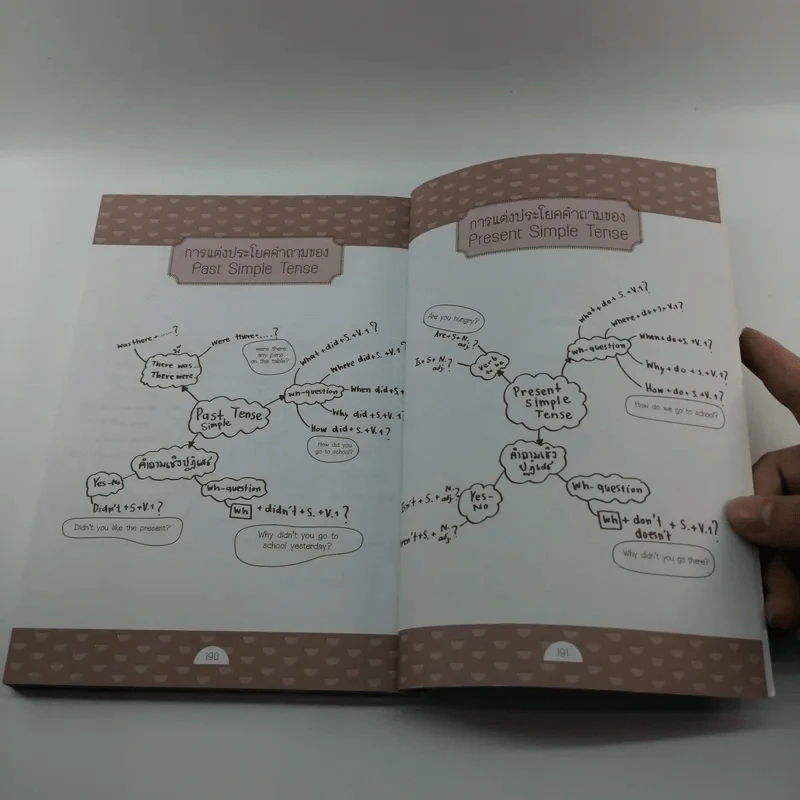 การแต่งประโยคคำถามของ
Past Simple Tense
was there + ......?
were there + .....?
มี
There was...
There were...
were there
any pens
on the table?
What + did + S. + V.1?
Where did + S. + V.1?
When did + S. +
Why did + S. + V.1?
How did + S. + V.1?
wh-question
How did you
go to school?
Past Tense
Simple
คำถามเชิงปฏิเสธ
Yes-No
Didn't + S + V.1?
Didn't you like the present?
wh-question
wh + didn't + S. + V.1?
Why didn't you go to
school yesterday?
190
การแต่งประโยคคำถามของ
Present Simple Tense
Are you hungry?
Are + S + N.
adj.?
Is + S + N.
adj.?
verb
to be
what + do + S. + V.1?
Where + do + S. + V.1?
When + do + S. + V.1?
Why + do + S. + V.1?
How + do + S. + V.1?
wh-question
How do we go to school?
Present
Simple
Tense
คำถามเชิง
ปฏิเสธ
Yes-
No
Isn't + S. + N.
adj.?
ren't + S. + N.
adj.?
wh-question
wh + don't + S. + V.1?
doesn't
Why didn't you go there?
191